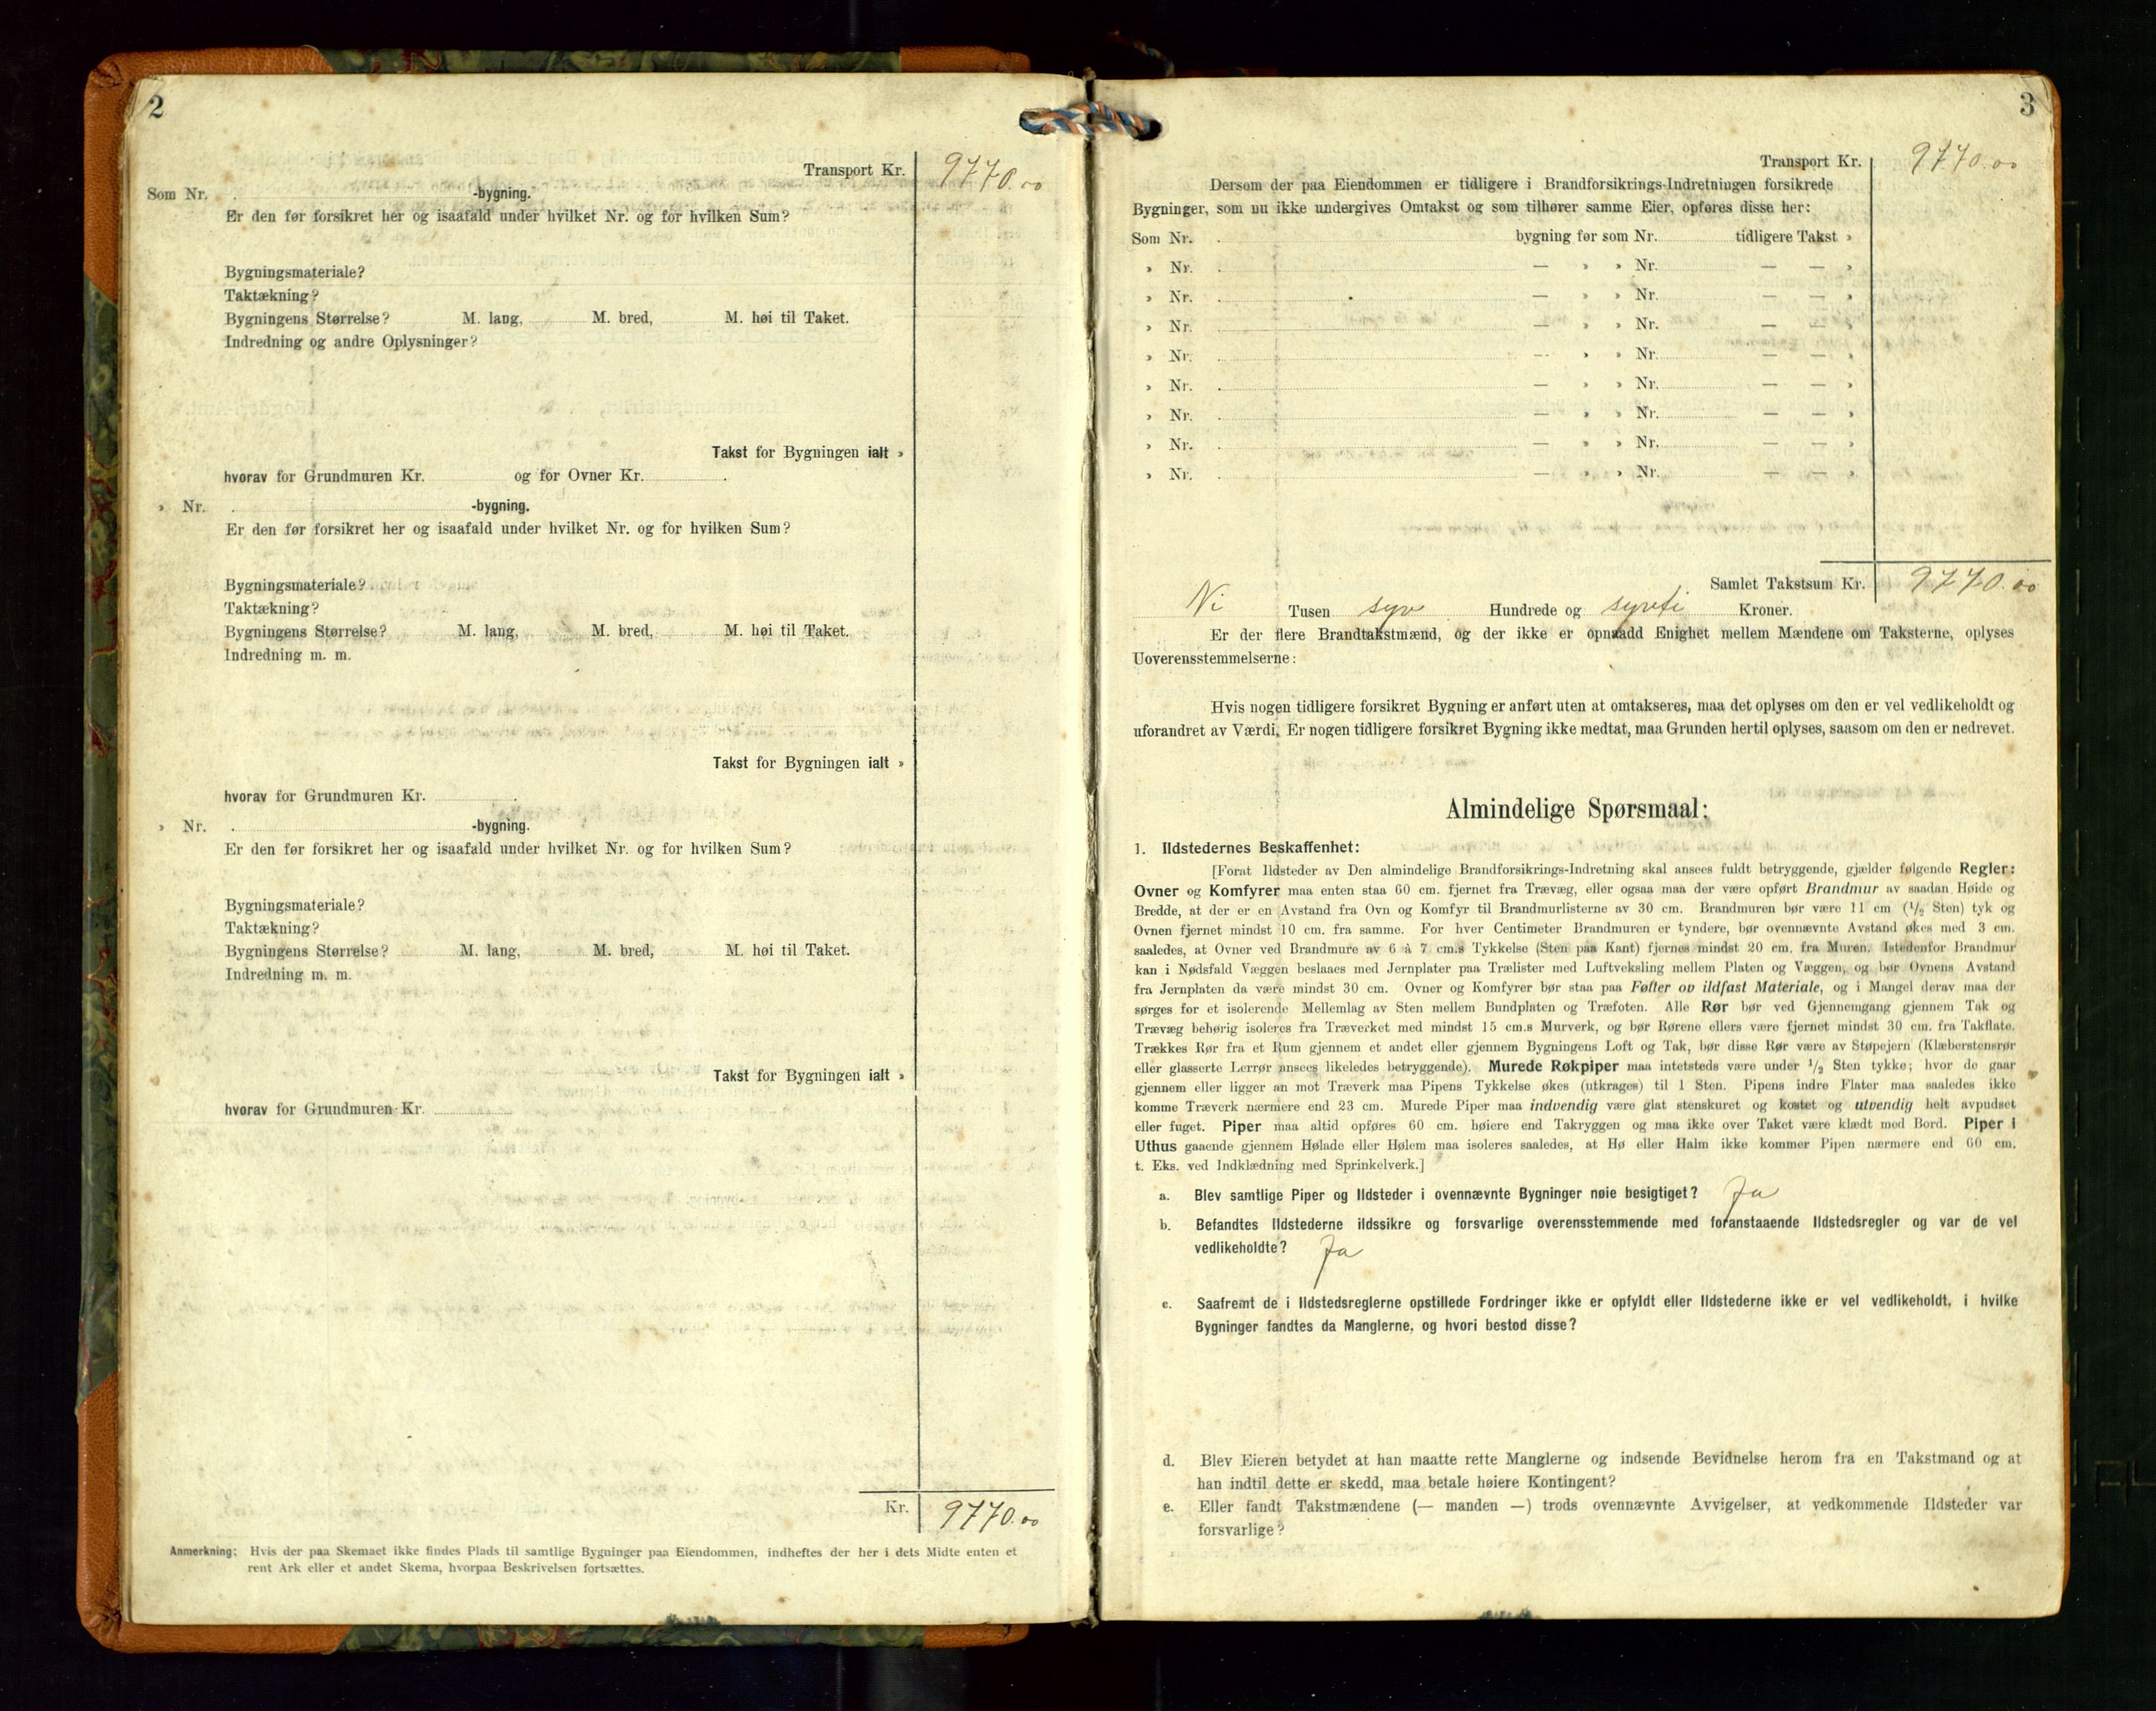 2
Transport Kr. 9770.00
Som Nr. -bygning.
Er den før forsikret her og isaafald under hvilket Nr. og for hvilken Sum?
Bygningsmateriale?
Taktækning?
Bygningens Størrelse? M. lang, M. bred, M. høi til Taket.
Indredning og andre Oplysninger?
Takst for Bygningen ialt »
hvorav for Grundmuren Kr. og for Ovner Kr. .
» Nr. -bygning.
Er den før forsikret her og isaafald under hvilket Nr. og for hvilken Sum?
Bygningsmateriale?
Taktækning?
Bygningens Størrelse? M. lang, M. bred, M. høi til Taket.
Indredning m. m.
Takst for Bygningen ialt »
hvorav for Grundmuren Kr. .
» Nr. -bygning.
Er den før forsikret her og isaafald under hvilket Nr. og for hvilken Sum?
Bygningsmateriale?
Taktækning?
Bygningens Størrelse? M. lang, M. bred, M. høi til Taket.
Indredning m. m.
Takst for Bygningen ialt »
hvorav for Grundmuren Kr.
Kr. 9770.00
Anmerkning: Hvis der paa Skemaet ikke findes Plads til samtlige Bygninger paa Eiendommen, indheftes der her i dets Midte enten et
rent Ark eller et andet Skema, hvorpaa Beskrivelsen fortsættes.
3
Transport Kr. 9770.00
Dersom der paa Eiendommen er tidligere i Brandforsikrings-Indretningen forsikrede
Bygninger, som nu ikke undergives Omtakst og som tilhører samme Eier, opføres disse her:
Som Nr. bygning før som Nr. tidligere Takst »
» Nr. — » » Nr. — — »
» Nr. — » » Nr. — — »
» Nr. — » » Nr. — — »
» Nr. — » » Nr. — — »
» Nr. — » » Nr. — — »
» Nr. — » » Nr. — — »
» Nr. — » » Nr. — — »
» Nr. — » » Nr. — — »
Samlet Takstsum Kr. 9770.00
Ni Tusen syv Hundrede og syvti Kroner.
Er der flere Brandtakstmænd, og der ikke er opnaadd Enighet mellem Mændene om Taksterne, oplyses
Uoverensstemmelserne:
Hvis nogen tidligere forsikret Bygning er anført uten at omtakseres, maa det oplyses om den er vel vedlikeholdt og
uforandret av Værdi. Er nogen tidligere forsikret Bygning ikke medtat, maa Grunden hertil oplyses, saasom om den er nedrevet.
Almindelige Spørsmaal:
1. Ildstedernes Beskaffenhet:
[Forat Ildsteder av Den almindelige Brandforsikrings-Indretning skal ansees fuldt betryggende, gjælder følgende Regler:
Ovner og Komfyrer maa enten staa 60 cm. fjernet fra Trævæg, eller ogsaa maa der være opført Brandmur av saadan Høide og
Bredde, at der er en Avstand fra Ovn og Komfyr til Brandmurlisterne av 30 cm. Brandmuren bør være 11 cm (1/2 Sten) tyk og
Ovnen fjernet mindst 10 cm. fra samme. For hver Centimeter Brandmuren er tyndere, bør ovennævnte Avstand økes med 3 cm.
saaledes, at Ovner ved Brandmure av 6 à 7 cm.s Tykkelse (Sten paa Kant) fjernes mindst 20 cm. fra Muren. Istedenfor Brandmur
kan i Nødsfald Væggen beslaaes med Jernplater paa Trælister med Luftveksling mellem Platen og Væggen, og bør Ovnens Avstand
fra Jernplaten da være mindst 30 cm. Ovner og Komfyrer bør staa paa Føtter ov ildfast Materiale, og i Mangel derav maa der
sørges for et isolerende Mellemlag av Sten mellem Bundplaten og Træfoten. Alle Rør bør ved Gjennemgang gjennem Tak og
Trævæg behørig isoleres fra Træverket med mindst 15 cm.s Murverk, og bør Rørene ellers være fjernet mindst 30 cm. fra Takflate.
Trækkes Rør fra et Rum gjennem et andet eller gjennem Bygningens Loft og Tak, bør disse Rør være av Støpejern (Klæberstensrør
eller glasserte Lerrør ansees likeledes betryggende). Murede Røkpiper maa intetsteds være under 1/2 Sten tykke; hvor de gaar
gjennem eller ligger an mot Træverk maa Pipens Tykkelse økes (utkrages) til 1 Sten. Pipens indre Flater maa saaledes ikke
komme Træverk nærmere end 23 cm. Murede Piper maa indvendig være glat stenskuret og kostet og utvendig helt avpudset
eller fuget. Piper maa altid opføres 60 cm. høiere end Takryggen og maa ikke over Taket være klædt med Bord. Piper i
Uthus gaaende gjennem Hølade eller Hølem maa isoleres saaledes, at Hø eller Halm ikke kommer Pipen nærmere end 60 cm.
t. Eks. ved Indklædning med Sprinkelverk.]
a. Blev samtlige Piper og Ildsteder i ovennævnte Bygninger nøie besigtiget? Ja
b. Befandtes Ildstederne ildssikre og forsvarlige overensstemmende med foranstaaende Ildstedsregler og var de vel
vedlikeholdte? Ja
c. Saafremt de i Ildstedsreglerne opstillede Fordringer ikke er opfyldt eller Ildstederne ikke er vel vedlikeholdt, i hvilke
Bygninger fandtes da Manglerne, og hvori bestod disse?
d. Blev Eieren betydet at han maatte rette Manglerne og indsende Bevidnelse herom fra en Takstmand og at
han indtil dette er skedd, maa betale høiere Kontingent?
e. Eller fandt Takstmændene (— manden —) trods ovennævnte Avvigelser, at vedkommende Ildsteder var
forsvarlige?